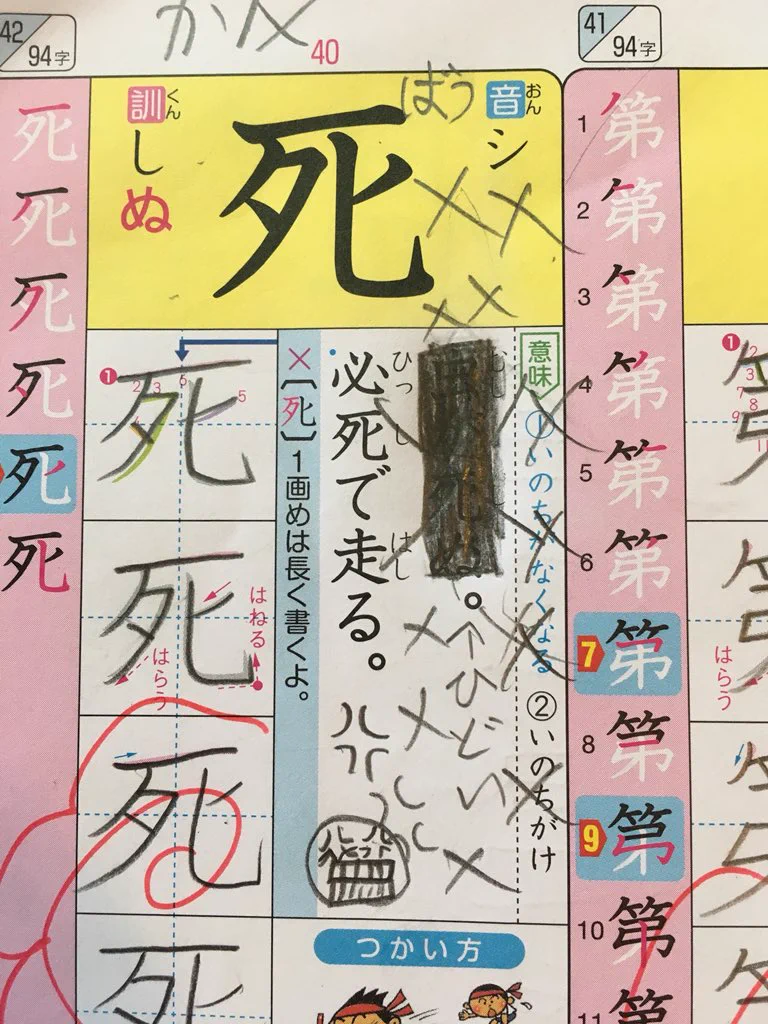 41
94字
1 第
2 第
3 第
4 第
5 第
6 第
7 第
8 第
9 第
10 第
11 第
はらう
42
94字
40
音
おん
シ
ばつ
死
訓
くん
しぬ
意味
①いのちがなくなる ②いのちがけ
↑ひどい
ひっ し はし
必死で走る。
×〔死〕1画めは長く書くよ。
つかい方
1 2 3 5 6
死
死
はねる
はらう
死
死
死
死
死
死
死
死